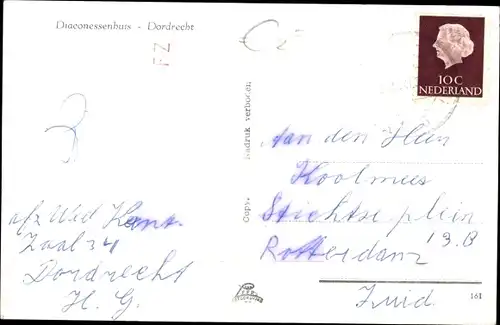 Diaconessenhuis - Dordrecht
FZ
10 C
NEDERLAND
Nadruk verboden
Copr.
Aan den Heer
Koolmees
Stichtse plein
19.B
Rotterdam
Zuid.
afz Wed
Zaal 34
Dordrecht
H. G.
161